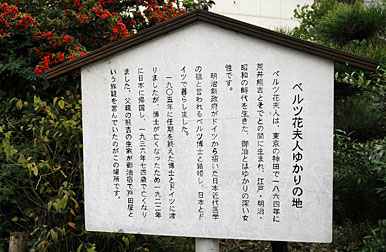 ベルツ花夫人ゆかりの地
ベルツ花夫人は、東京の神田で一八六四年に
荒井熊吉とそでとの間に生まれ、江戸・明治・
昭和の時代を生きた、御油とはゆかりの深い女
性です。
明治新政府がドイツから招いた日本近代医学
の祖と言われるベルツ博士と結婚し、日本とド
イツで暮らしました。
一九〇五年に任期を終えた博士とドイツに渡
りましたが、博士が亡くなったため一九二二年
に日本に帰国し、一九三六年七四歳で亡くなり
ました。父親の熊吉の生家が御油宿で戸田屋と
いう旅籠を営んでいたのがこの場所です。